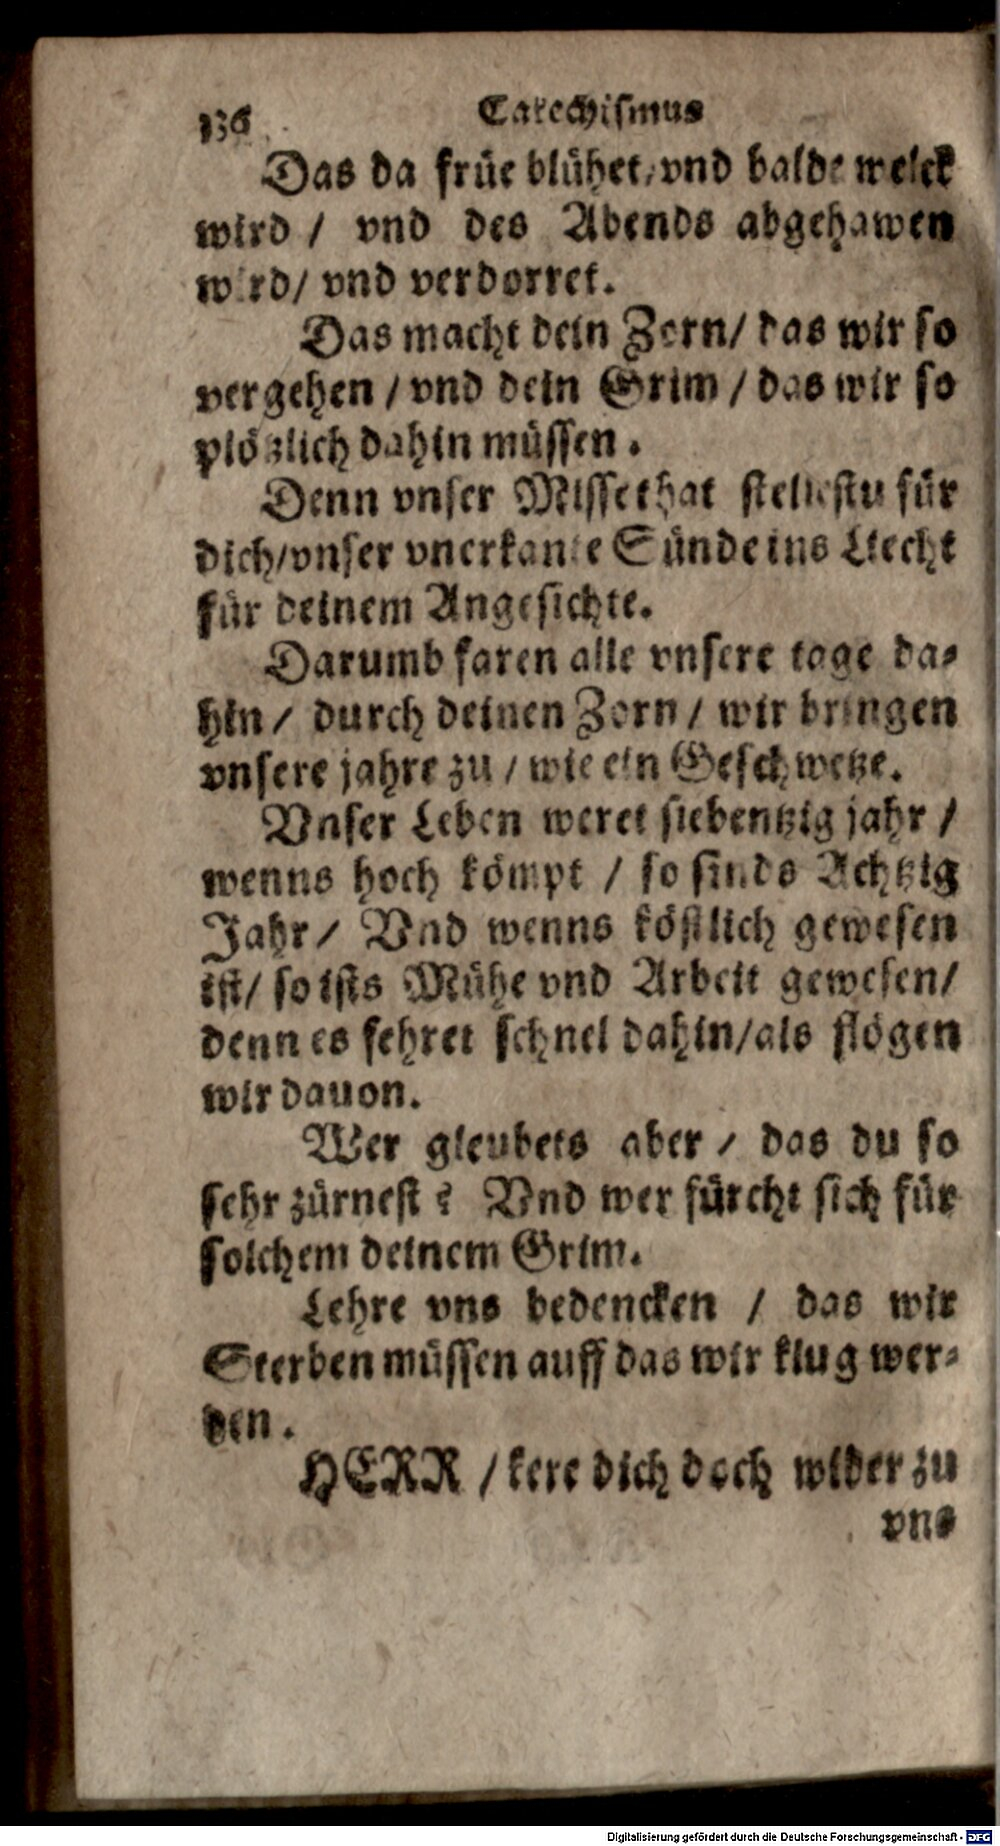 136 Catechismus
Das da früe blühet/vnd balde welck
wird / vnd des Abends abgehawen
wird/ vnd verdorret.
Das macht dein Zorn/ das wir so
vergehen / vnd dein Grim / das wir so
plötzlich dahin müssen.
Denn vnser Missethat stellestu für
dich/vnser vnerkante Sünde ins Liecht
für deinem Angesichte.
Darumb faren alle vnsere tage da-
hin / durch deinen Zorn / wir bringen
vnsere jahre zu / wie ein Geschwetze.
Vnser Leben weret siebentzig jahr /
wenns hoch kömpt / so sinds Achtzig
Jahr / Vnd wenns köstlich gewesen
ist/ so ists Mühe vnd Arbeit gewesen/
denn es fehret schnel dahin/als flögen
wir dauon.
Wer gleubets aber / das du so
sehr zürnest? Vnd wer fürcht sich für
solchem deinem Grim.
Lehre vns bedencken / das wir
Sterben müssen auff das wir klug wer-
den.
HERR / kere dich doch wider zu
vns
Digitalisierung gefördert durch die Deutsche Forschungsgemeinschaft - DFG